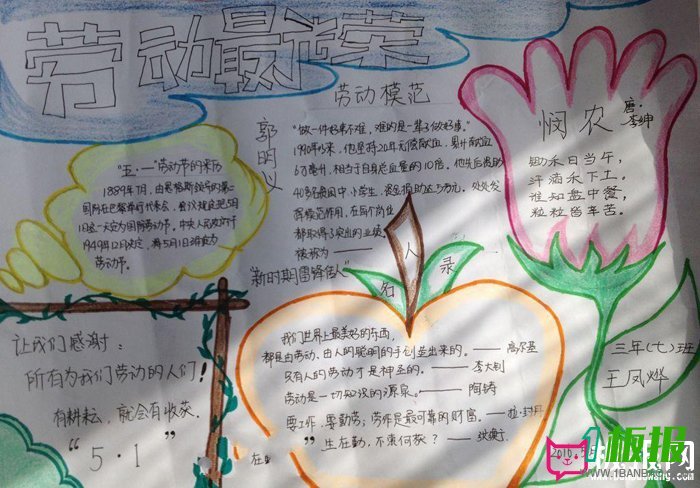 劳动最光荣
劳动模范
郭明义
"做一件好事不难，难的是一辈子做好事。"
1990年以来，他坚持20年无偿献血，累计献血
6万毫升，相当于自身总血量的10倍。他先后资助
发挥模范作用，在每个岗位
都取得了突出的业绩，
被称为——
"新时期雷锋传人"
"五·一"劳动节的来历
1889年7月，由恩格斯领导的第二
国际在巴黎举行代表会，会议规定把5月
1日这一天定为国际劳动节。中央人民政府于
1949年12月决定，将5月1日确定为
劳动节。
悯农
唐·李绅
锄禾日当午，
汗滴禾下土。
谁知盘中餐，
粒粒皆辛苦。
名人录
我们世界上最美好的东西，
都是由劳动、由人的聪明的手创造出来的。——高尔基
只有人的劳动才是神圣的。——李大钊
劳动是一切知识的源泉。——陶铸
要工作，要勤劳，劳作是最可靠的财富。
"生在勤，不索何获？
让我们感谢：
所有为我们劳动的人们！
有耕耘，就会有收获。
"5·1"
三年(七)班
王凤烨
板报
WWW.1BANBAO.COM